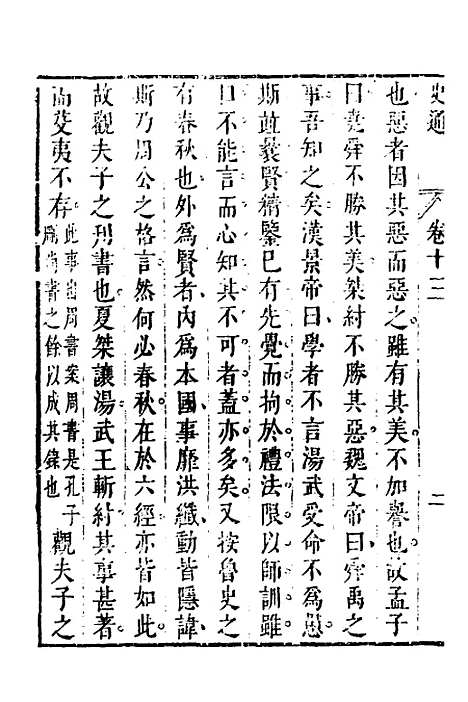 史通 卷十三 二
也惡者因其惡而惡之雖有其美不加譽也故孟子
曰堯舜不勝其美桀紂不勝其惡魏文帝曰舜禹之
事吾知之矣漢景帝曰學者不言湯武受命不爲愚
斯並曩賢精鑒已有先覺而拘於禮法限以師訓雖
口不能言而心知其不可者蓋亦多矣又按魯史之
有春秋也外爲賢者內爲本國事靡洪纖動皆隱諱
斯乃周公之格言然何必春秋在於六經亦皆如此
故觀夫子之刊書也夏桀讓湯武王斬紂其事甚著
而芟夷不存此事出周書案周書是孔子刪尚書之餘以成其錄也觀夫子之